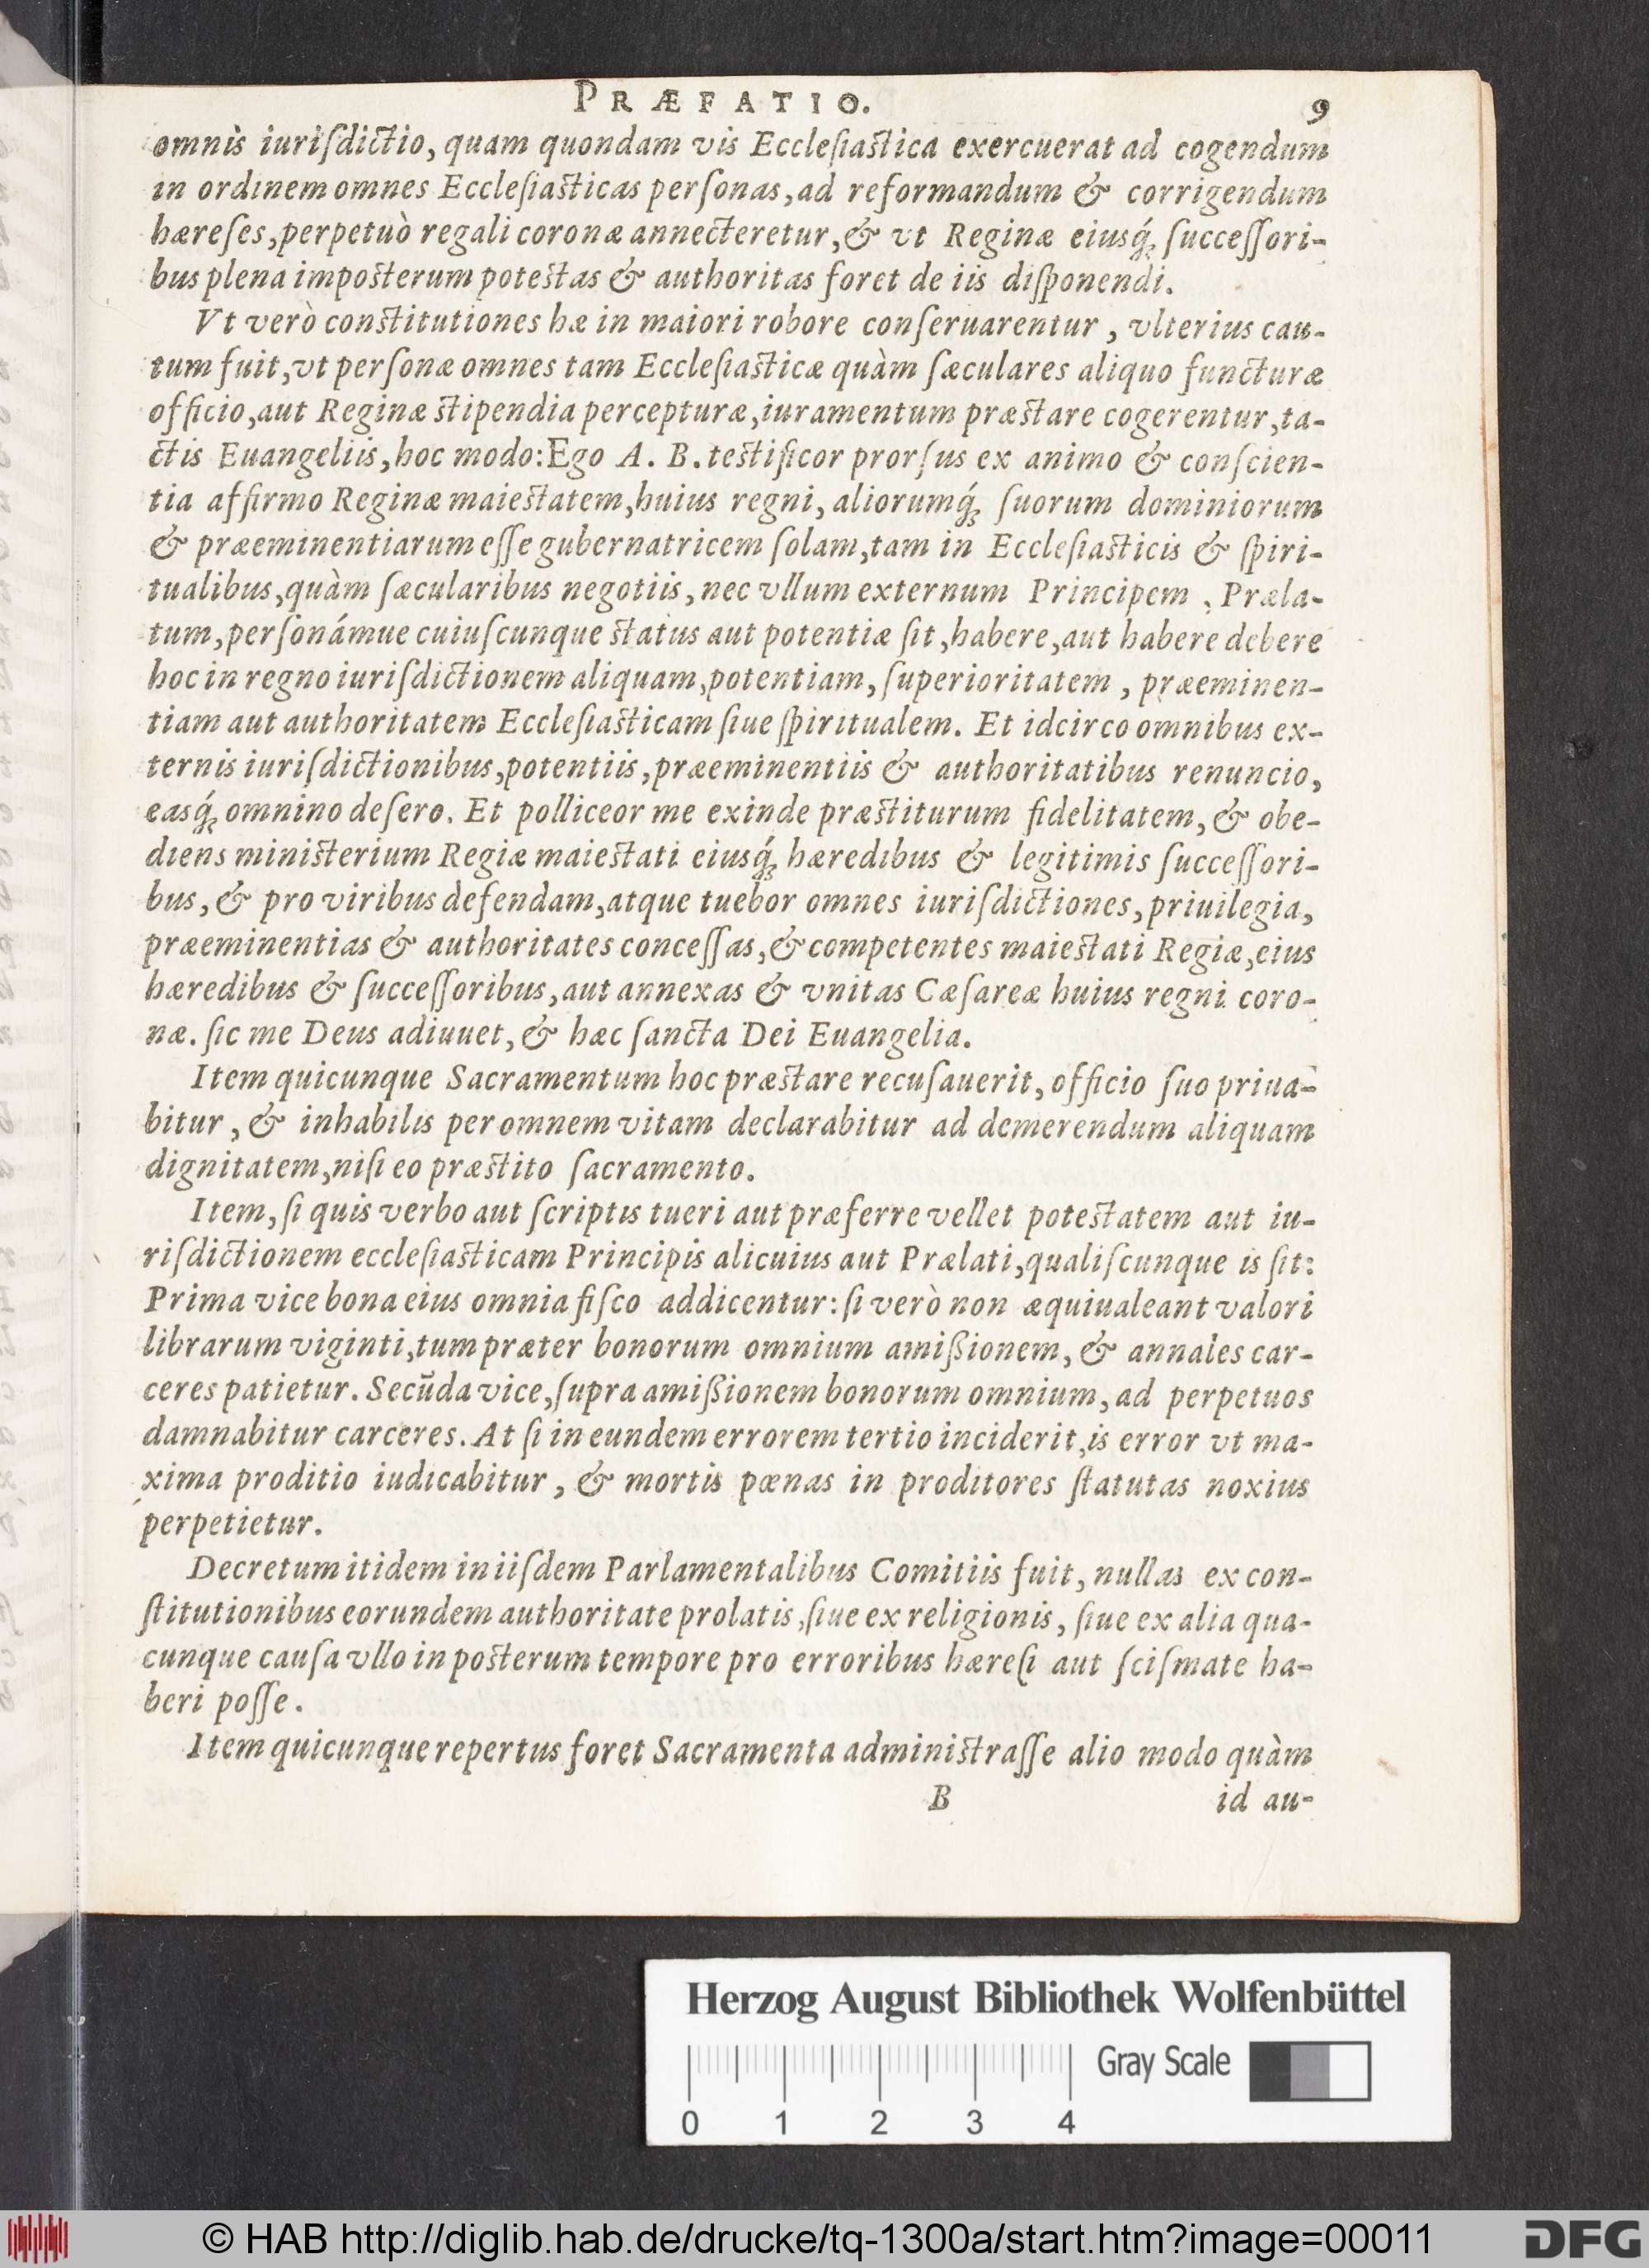 PRÆFATIO. 9
omnis iuriſdictio, quam quondam vis Eccleſiaſtica exercuerat ad cogendum
in ordinem omnes Eccleſiaſticas perſonas, ad reformandum & corrigendum
hæreſes, perpetuò regali coronæ annecteretur, & vt Reginæ eiusq́; ſucceſſori-
bus plena impoſterum poteſtas & authoritas foret de iis diſponendi.
Vt verò conſtitutiones hæ in maiori robore conſeruarentur, vlterius cau-
tum fuit, vt perſonæ omnes tam Eccleſiaſticæ quàm ſæculares aliquo functuræ
officio, aut Reginæ ſtipendia percepturæ, iuramentum præſtare cogerentur, ta-
ctis Euangeliis, hoc modo: Ego A. B. teſtificor prorſus ex animo & conſcien-
tia affirmo Reginæ maieſtatem, huius regni, aliorumq́; ſuorum dominiorum
& præeminentiarum eſſe gubernatricem ſolam, tam in Eccleſiaſticis & ſpiri-
tualibus, quàm ſæcularibus negotiis, nec vllum externum Principem, Præla-
tum, perſonámue cuiuſcunque ſtatus aut potentiæ ſit, habere, aut habere debere
hoc in regno iuriſdictionem aliquam, potentiam, ſuperioritatem, præeminen-
tiam aut authoritatem Eccleſiaſticam ſiue ſpiritualem. Et idcirco omnibus ex-
ternis iuriſdictionibus, potentiis, præeminentiis & authoritatibus renuncio,
easq́; omnino deſero. Et polliceor me exinde præſtiturum fidelitatem, & obe-
diens miniſterium Regiæ maieſtati eiusq́; hæredibus & legitimis ſucceſſori-
bus, & pro viribus defendam, atque tuebor omnes iuriſdictiones, priuilegia,
præeminentias & authoritates conceſſas, & competentes maieſtati Regiæ, eius
hæredibus & ſucceſſoribus, aut annexas & vnitas Cæſareæ huius regni coro-
næ. ſic me Deus adiuuet, & hæc ſancta Dei Euangelia.
Item quicunque Sacramentum hoc præſtare recuſauerit, officio ſuo priua-
bitur, & inhabilis per omnem vitam declarabitur ad demerendum aliquam
dignitatem, niſi eo præſtito ſacramento.
Item, ſi quis verbo aut ſcriptis tueri aut præferre vellet poteſtatem aut iu-
riſdictionem eccleſiaſticam Principis alicuius aut Prælati, qualiſcunque is ſit:
Prima vice bona eius omnia fiſco addicentur: ſi verò non æquiualeant valori
librarum viginti, tum præter bonorum omnium amißionem, & annales car-
ceres patietur. Secūda vice, ſupra amißionem bonorum omnium, ad perpetuos
damnabitur carceres. At ſi in eundem errorem tertio inciderit, is error vt ma-
xima proditio iudicabitur, & mortis pœnas in proditores ſtatutas noxius
perpetietur.
Decretum itidem in iiſdem Parlamentalibus Comitiis fuit, nullas ex con-
ſtitutionibus eorundem authoritate prolatis, ſiue ex religionis, ſiue ex alia qua-
cunque cauſa vllo in poſterum tempore pro erroribus hæreſi aut ſciſmate ha-
beri poſſe.
Item quicunque repertus foret Sacramenta adminiſtraſſe alio modo quàm
B id au-
Herzog August Bibliothek Wolfenbüttel
Gray Scale
0 1 2 3 4
© HAB http://diglib.hab.de/drucke/tq-1300a/start.htm?image=00011 DFG